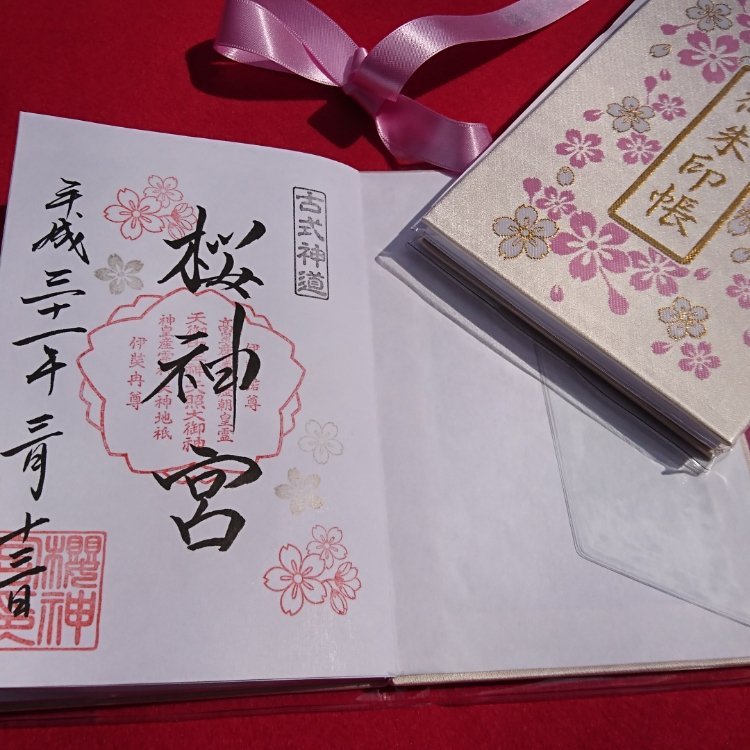 古式神道
桜神宮
天照大御神
神皇産霊
天神地祇
伊奘冉尊
平成三十一年三月十三日
櫻神
朱印帳